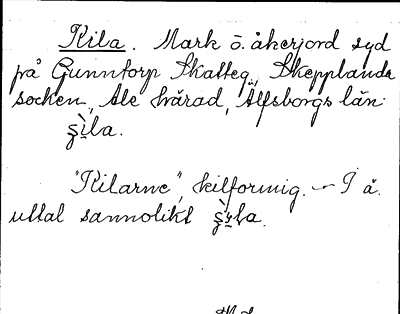 Kila. Mark ö. åkerjord syd
på Gunntorp Skatteg., Skepplanda
socken, Ale härad, Älfsborgs län.
ʂìla.
"Kilarne", kilformig. — I ä.
uttal sannolikt ʂìla.